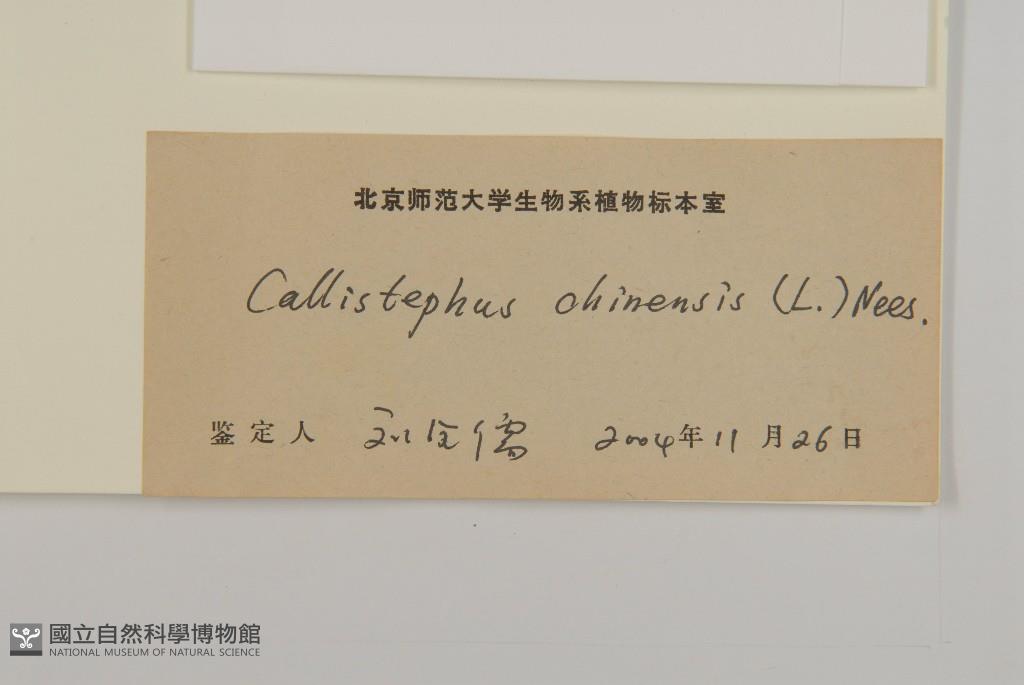 北京师范大学生物系植物标本室
Callistephus chinensis (L.) Nees.
鉴定人 刘全儒 2004年11月26日
國立自然科學博物館
NATIONAL MUSEUM OF NATURAL SCIENCE